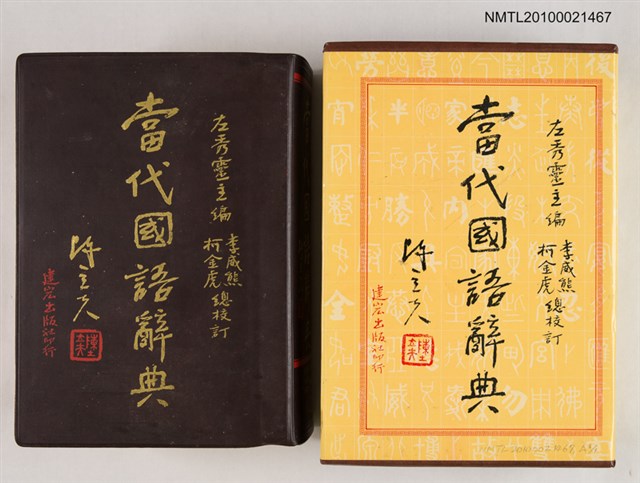 NMTL20100021467
當代國語辭典
左秀靈主編
李威熊
柯金虎 總校訂
陳立夫
建宏出版社印行
當代國語辭典
左秀靈主編
李威熊
柯金虎 總校訂
陳立夫
建宏出版社印行